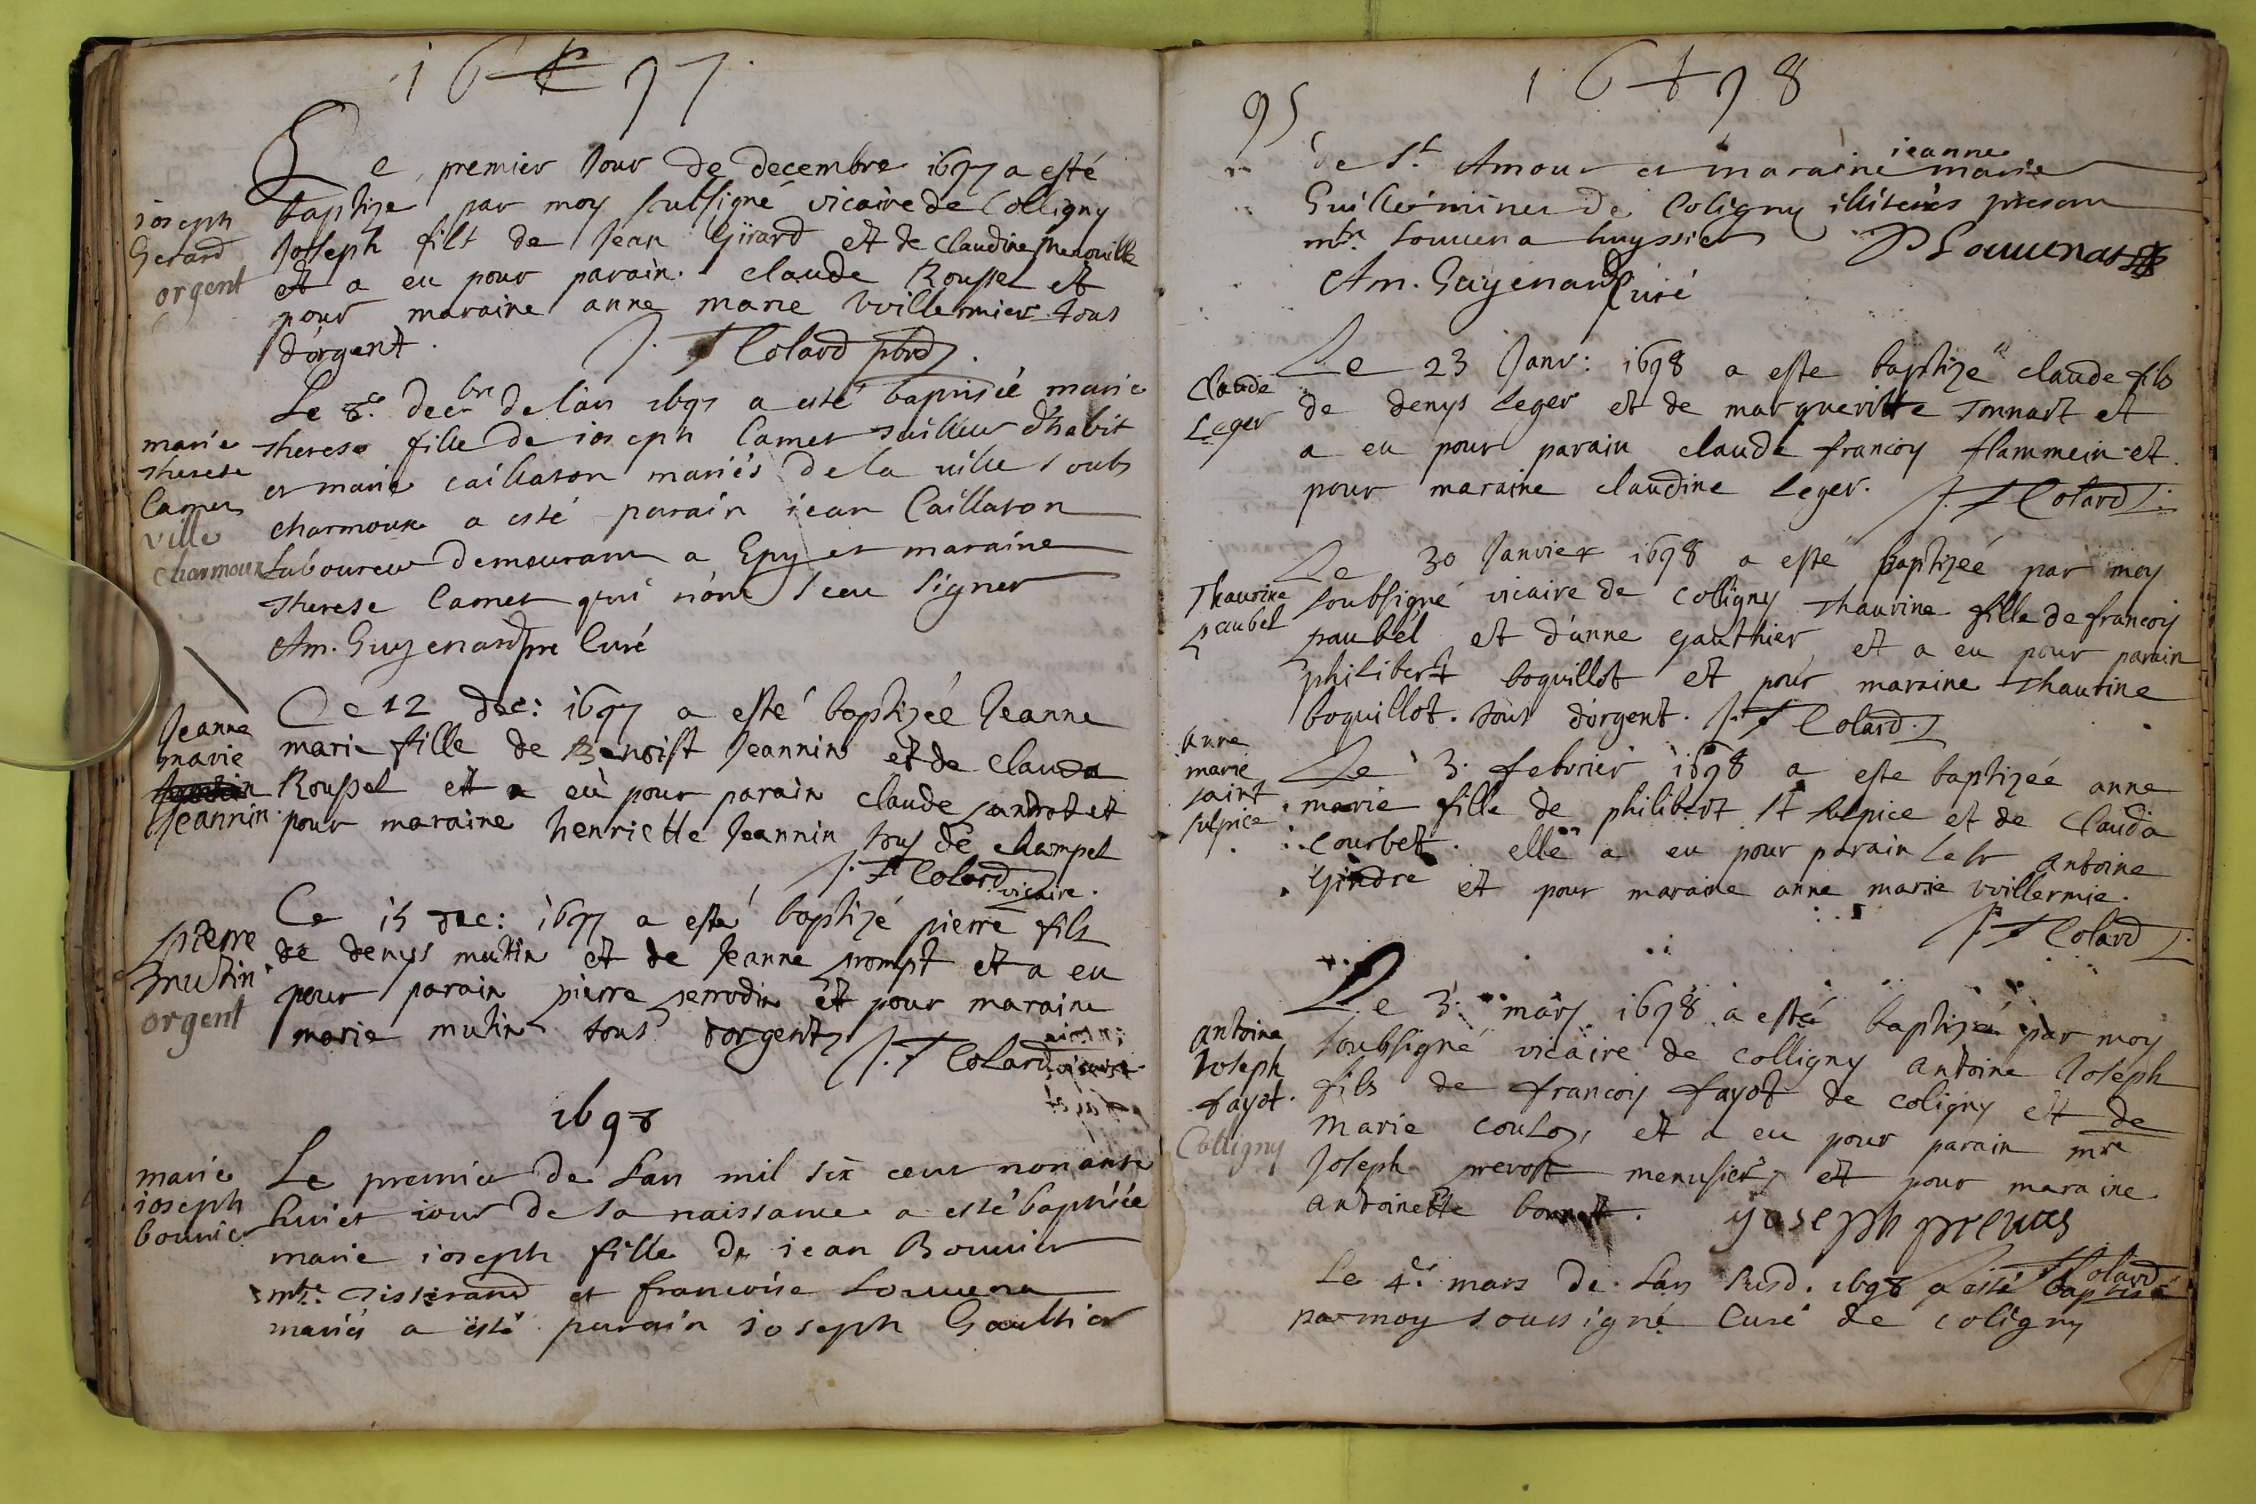 1697
Le premier Jour de decembre 1697 a esté
baptize par moy subsigné vicaire de Colligny
ioseph
Gerard
orgent
Joseph filt de Jean Girard et de claudine
et a eu pour parain. claude Roussel et
pour maraine anne marie vvillermier tous
d'orgent. J. F Colard pbre.
Le 8e decbre de lan 1697 a esté baptisée marie
marie
therese
Camet
ville
charmoux
therese fille de ioseph Camet tailleur d'habit
et marie caillaton mariés de la ville soubs
charmoux a esté parain iean Caillaton
laboureur demeurant a Epy et maraine
therese Camet qui n'ont sceu signer
Am. Guyenard pre Curé
Jeanne
marie
Jeannin
Ce 12 dec: 1697 a esté baptizée Jeanne
marie fille de Benoist Jeannin et de clauda
Roussel et a eu pour parain claude sandrot et
pour maraine henriette Jeannin tous de champel
J. F Colard vicaire.
pierre
mutin
orgent
Ce 15 dec: 1697 a esté baptizé pierre fils
de denys mutin et de Jeanne prompt et a eu
pour parain pierre perrodin et pour maraine
marie mutin tous d'orgent J. F Colard
1698
marie
ioseph
bouvier
Le premier de Lan mil six cent nonante
huict iour de sa naissance a esté baptisée
marie ioseph fille de iean Bouvier
mtre Tisserand et francoise Louvena
mariés a esté parain ioseph Gaulthier
1698
95
de St Amour et maraine jeanne marie
Guillerminet de Coligny illiterés present
mtre Louvena huyssier P Louvenat
Am. Guyenard Curé
Claude
Leger
Le 23 Janv: 1698 a esté baptizé claude fils
de denys Leger et de marguerite Tonnart et
a eu pour parain claude francoy flammein et
pour maraine claudine Leger. J. F Colard
Thaurine
paubel
Le 30 Janvier 1698 a esté baptizéé par moy
soubsigné vicaire de colligny Thaurine fille de francoy
paubel et d'anne gauthier et a eu pour parain
philibert boquillot et pour maraine Thaurine
boquillot. tous d'orgent. J. F Colard.
anne
marie
saint
sulpice
Le 3. febvrier 1698 a este baptizéé anne
marie fille de philibert St sulpice et de Clauda
Courbet. elle a eu pour parain le sr antoine
Gindre et pour maraine anne marie vvillermie.
J. F Colard
antoine
Joseph
fayot.
Colligny
Le 3. mars 1698 a esté baptizé par moy
soubsigné vicaire de colligny antoine Joseph
fils de francoy fayot de coligny et de
Marie Couloz, et a eu pour parain mre
Joseph prevost menusier, et pour maraine
antoinette yoseph prevots
F Colard
Le 4e mars de Lan susd. 1698 a esté baptisé
par moy soussigné Curé de coligny